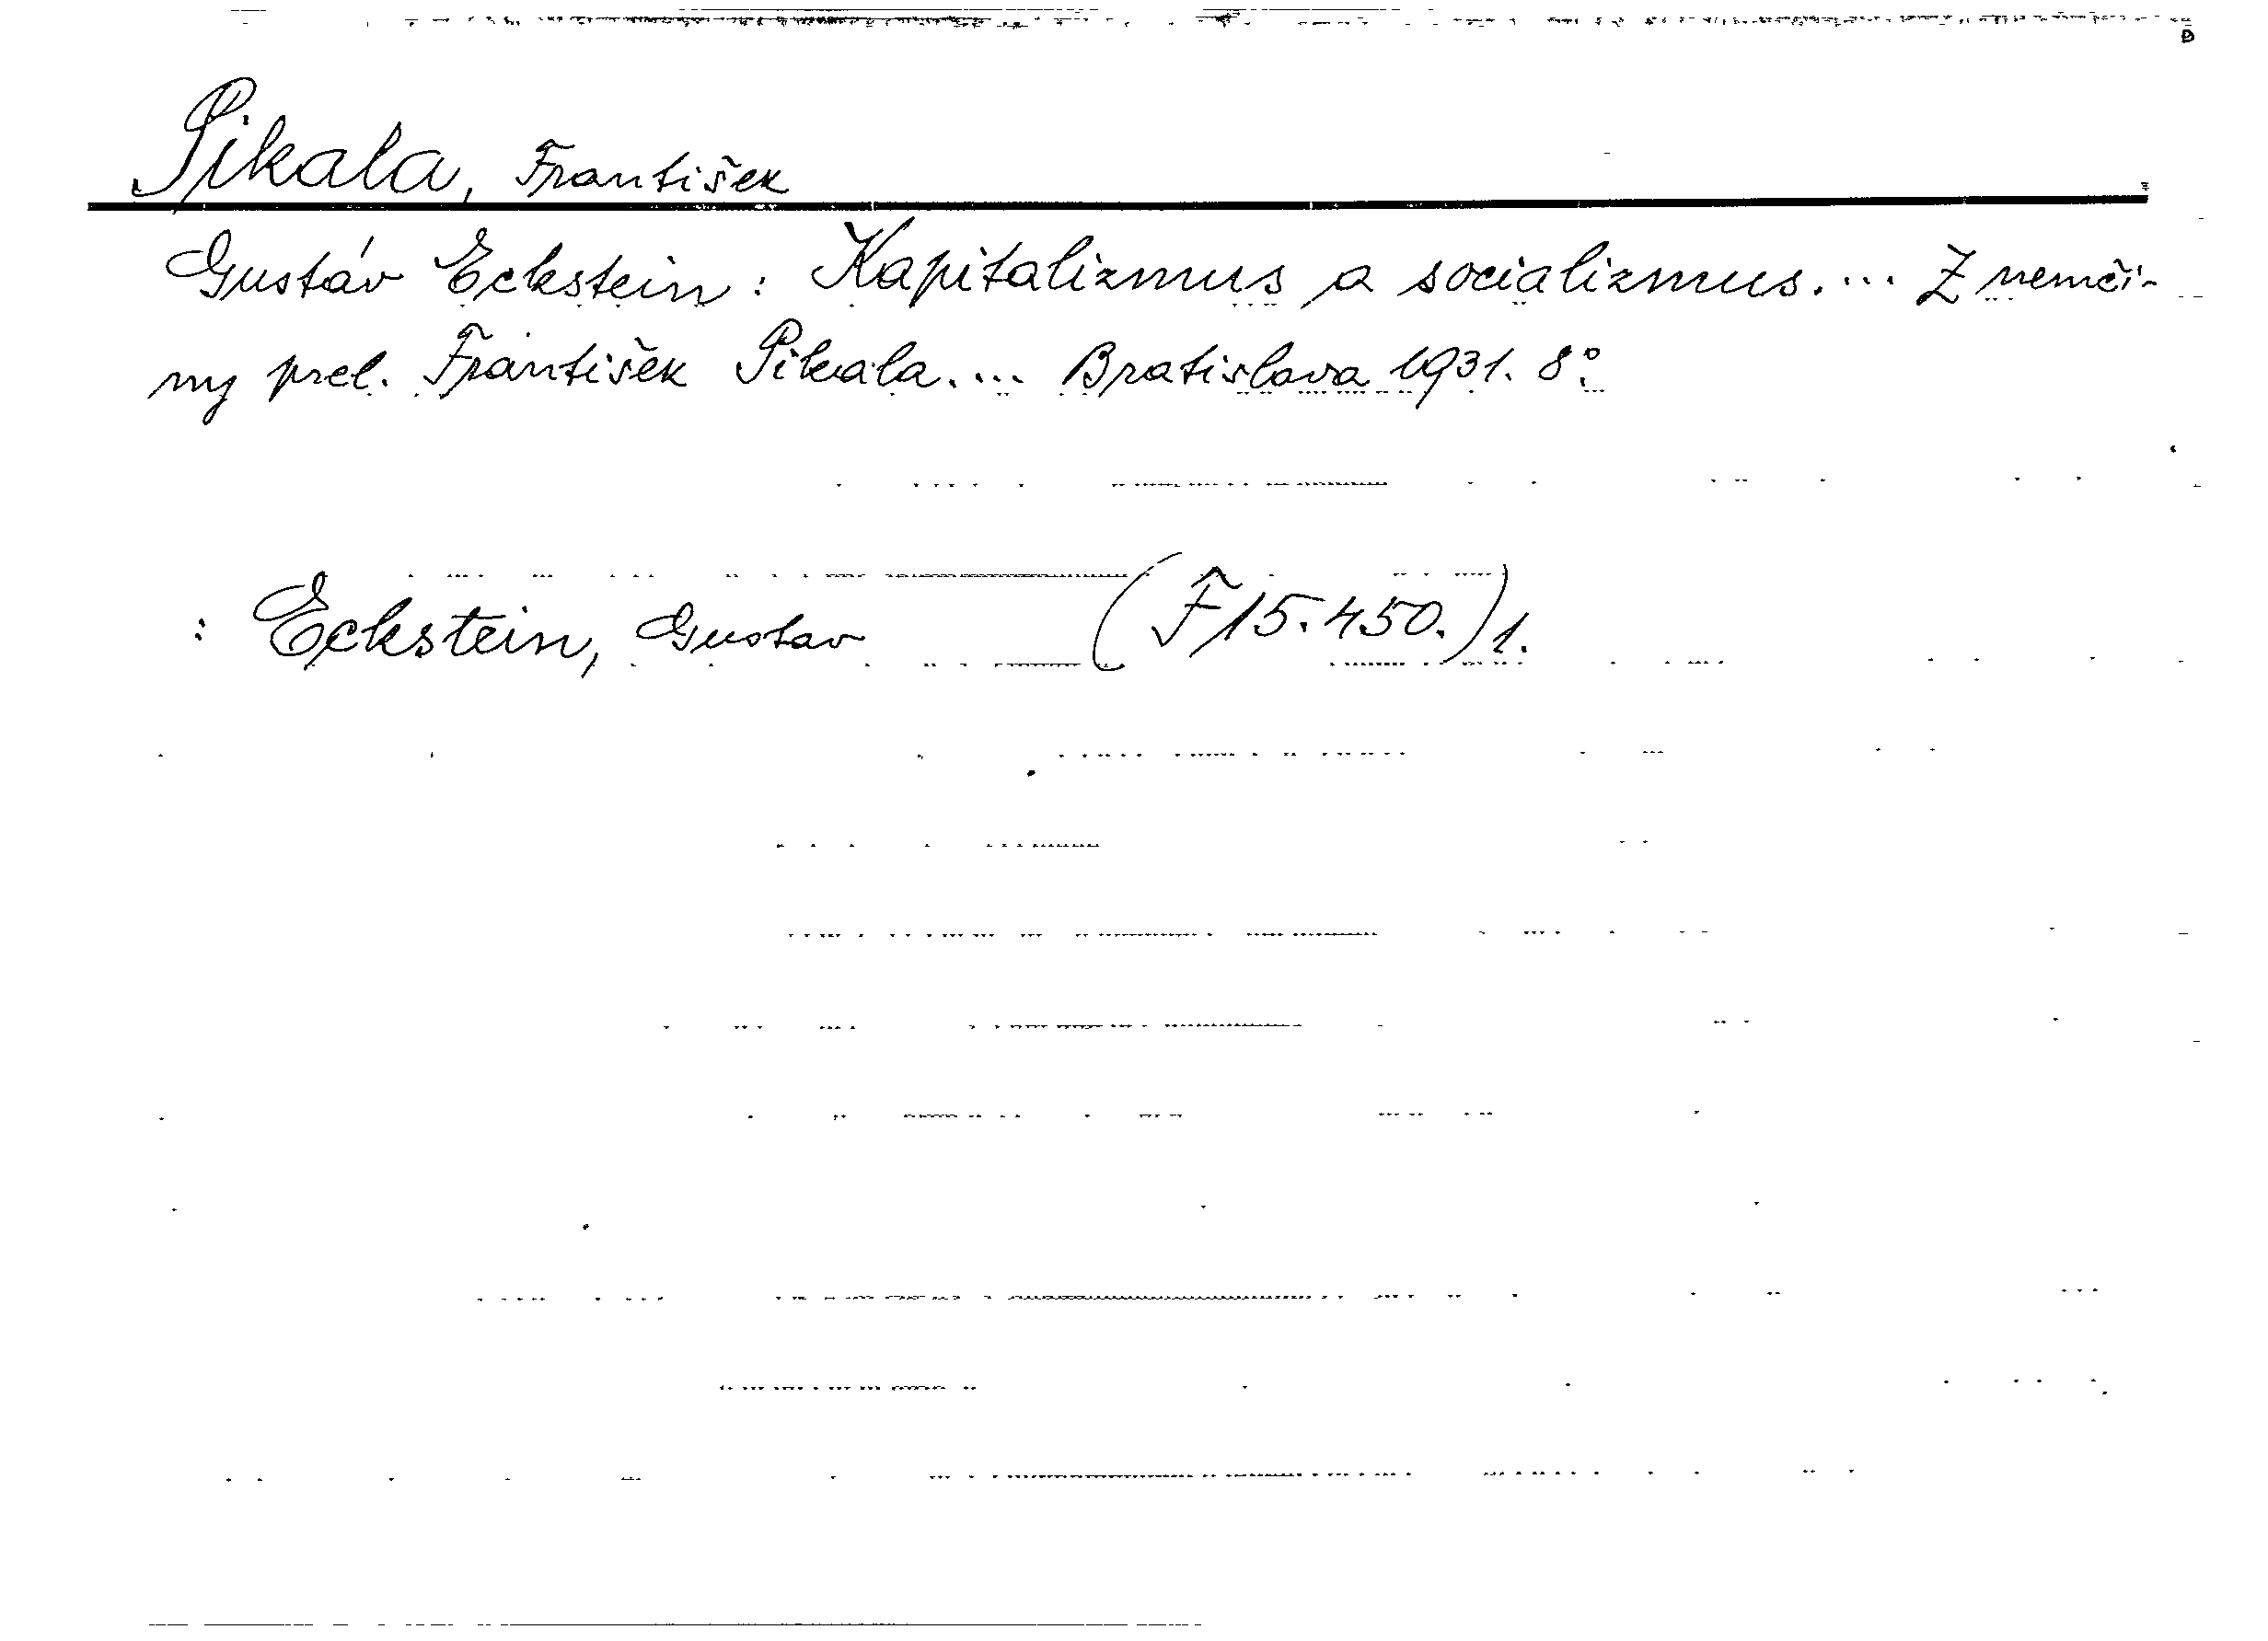 Pikala, František
Gustáv Eckstein: Kapitalizmus a socializmus.... Z nemči-
ny prel. František Pikala.... Bratislava 1931. 8°.
: Eckstein, Gustav (F 15.450.) 1.